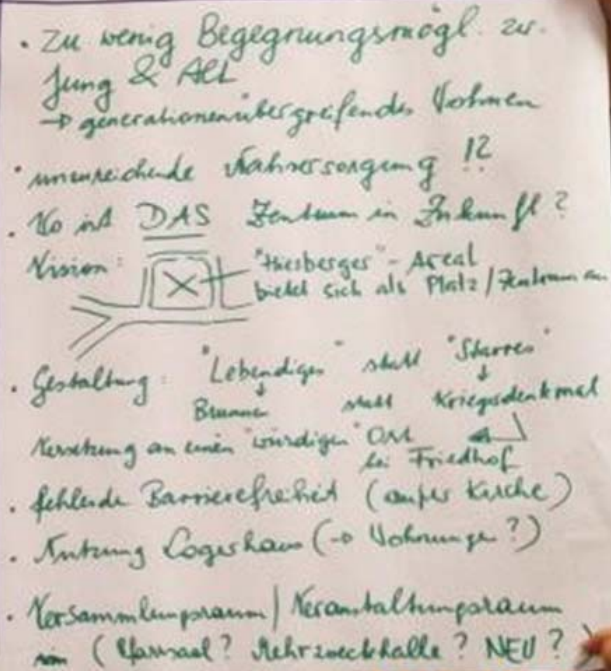 · Zu wenig Begegnungsmögl. zw.
Jung & Alt
→ generationenübergreifendes Wohnen
· unzureichende Nahversorgung !?
· Wo ist DAS Zentrum in Zukunft?
Vision: "Hiesberger"-Areal
bietet sich als Platz/Zentrum an
· Gestaltung: "Lebendiges" statt "Starres"
↓ ↓
Brunnen statt Kriegsdenkmal
Versetzung an einen "würdigen" Ort
bei Friedhof
· fehlende Barrierefreiheit (außer Kirche)
· Nutzung Lagerhaus (→ Wohnungen?)
· Versammlungsraum/Veranstaltungsraum
(Pfarrsaal? Mehrzweckhalle? NEU?)